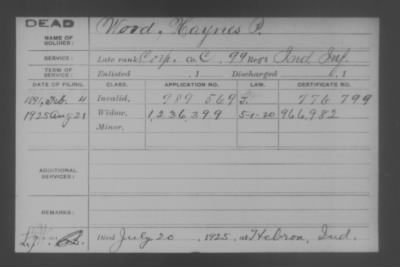 DEAD
NAME OF SOLDIER: Wood, Haynes P.
SERVICE: Late rank Corp. Co. C, 99 Reg't Ind Inf.
TERM OF SERVICE: Enlisted , 1 Discharged , 1
DATE OF FILING. CLASS. APPLICATION NO. LAW. CERTIFICATE NO.
Feb. 4 Invalid, 989 569 776 799
1925 Aug 21 Widow, 1,236,399 5-1-20 966,982
Minor,
ADDITIONAL SERVICES:
REMARKS:
Died July 20, 1925, at Hebron, Ind.